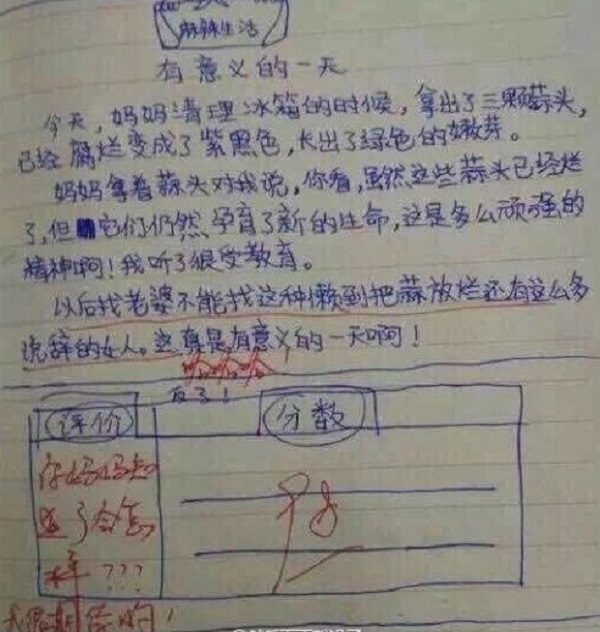 麻辣生活
有意义的一天
今天，妈妈清理冰箱的时候，拿出了三颗蒜头，
已经腐烂变成了紫黑色，长出了绿色的嫩芽。
妈妈拿着蒜头对我说，你看，虽然这些蒜头已经烂
了，但它们仍然孕育了新的生命，这是多么顽强的
精神啊！我听了很受教育。
以后找老婆不能找这种懒到把蒜放烂还有这么多
说辞的女人。这真是有意义的一天啊！
哈哈哈
反了！
评价
分数
你妈妈知
道了会怎
样???